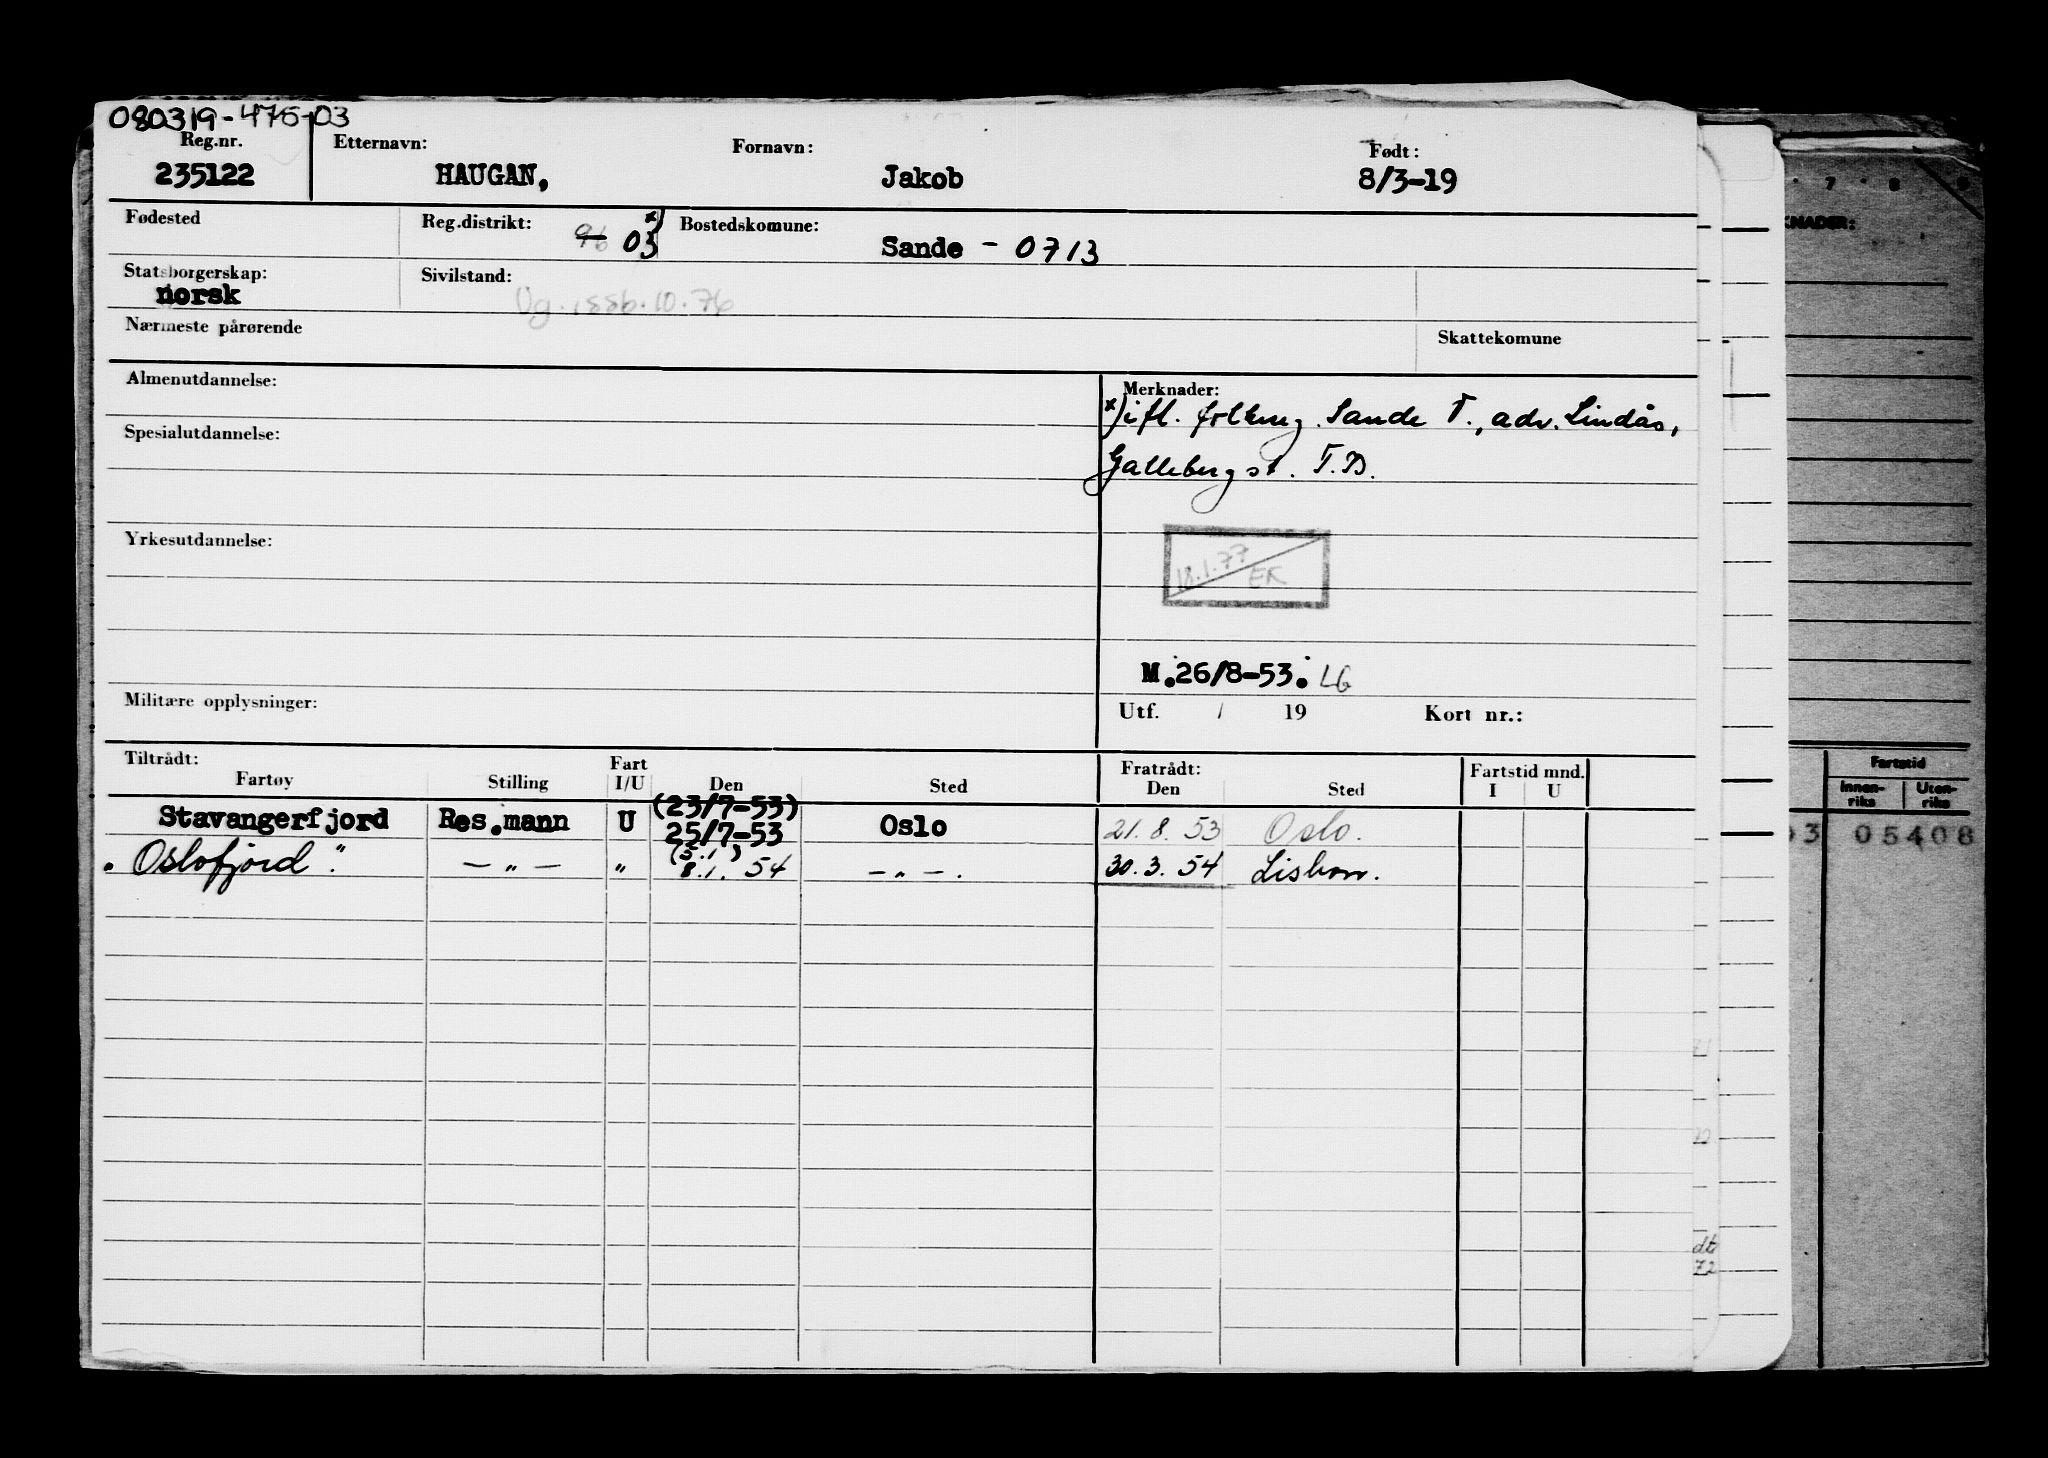 080319-476-03
Reg.nr. Etternavn: Fornavn: Født:
235122 HAUGAN, Jakob 8/3-19
Fødested Reg.distrikt: 96 03 x) Bostedskomune: Sande - 0713
Statsborgerskap: norsk Sivilstand:
10.76
Nærmeste pårørende Skattekomune
Almenutdannelse: Merknader:
x) ifl. folkereg. Sande V., adv. Lindås,
Spesialutdannelse:
Galleberg st. T.B.
Yrkesutdannelse:
18.1.77 EK
M.26/8-53. LG
Militære opplysninger: Utf. / 19 Kort nr.:
Tiltrådt: Fart Fratrådt: Fartstid mnd.
Fartøy Stilling I/U Den Sted Den Sted I U
(23/7-53)
Stavangerfjord Res.mann U 25/7-53 Oslo 21.8.53 Oslo.
(5.1)
"Oslofjord". — " — " 8.1. 54 — " —. 30.3.54 Lisbon.
7 8 9
KNADER:
Fartstid
Innen-riks Uten-riks
03 05408
71
72
dt
72